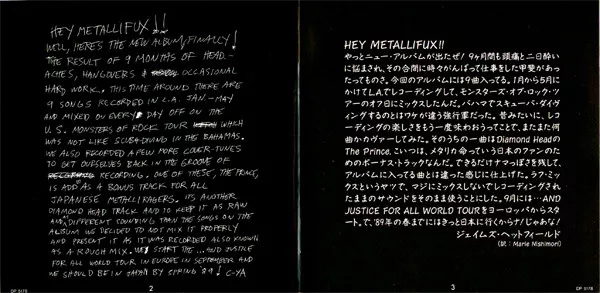 HEY METALLIFUX!!
WELL, HERE'S THE NEW ALBUM, FINALLY!
THE RESULT OF 9 MONTHS OF HEAD-
ACHES, HANGOVERS & OCCASIONAL
HARD WORK. THIS TIME AROUND THERE ARE
9 SONGS RECORDED IN L.A. JAN.-MAY
AND MIXED ON EVERY DAY OFF ON THE
U.S. MONSTERS OF ROCK TOUR WHICH
WAS NOT LIKE SCUBA-DIVING IN THE BAHAMAS.
WE ALSO RECORDED A FEW MORE COVER-TUNES
TO GET OURSELVES BACK IN THE GROOVE OF
RECORDING. ONE OF THESE, THE PRINCE,
IS ADD AS A BONUS TRACK FOR ALL
JAPANESE METALLIBANGERS. ITS ANOTHER
DIAMOND HEAD TRACK AND TO KEEP IT AS RAW
AND DIFFERENT SOUNDING THAN THE SONGS ON THE
ALBUM WE DECIDED TO NOT MIX IT PROPERLY
AND PRESENT IT AS IT WAS RECORDED ALSO KNOWN
AS A ROUGH MIX. WE START THE ...AND JUSTICE
FOR ALL WORLD TOUR IN EUROPE IN SEPTEMBER AND
WE SHOULD BE IN JAPAN BY SPRING '89! C-YA
DP 5178
2
HEY METALLIFUX!!
やっとニュー・アルバムが出たぜ! 9ヶ月間も頭痛と二日酔い
に悩まされ、その合間に時々がんばって仕事をした甲斐があっ
たってものさ。今回のアルバムには9曲入ってる。1月から5月に
かけてLAでレコーディングして、モンスターズ・オブ・ロック・ツ
アーのオフ日にミックスしたんだ。バハマでスキューバ・ダイヴ
ィングするのとはワケが違う強行軍だった。昔みたいに、レコ
ーディングの楽しさをもう一度味わおうってことで、またまた何
曲かカヴァーしてみた。そのうちの一曲はDiamond Headの
The Prince。こいつは、メタリカを待っている日本のファンのため
のボーナス・トラックなんだ。できるだけナマっぽさを残して、
アルバムに入ってる曲とは違った感じに仕上げた。ラフ・ミッ
クスというヤツで、マジにミックスしないでレコーディングされ
たままのサウンドをそのまま使うことにした。9月には…AND
JUSTICE FOR ALL WORLD TOURをヨーロッパからスタ
ート。で、'89年の春までにはきっと日本に行くからナ!じゃな!
ジェイムズ・ヘットフィールド
(訳:Marie Nishimori)
3
DP 5178